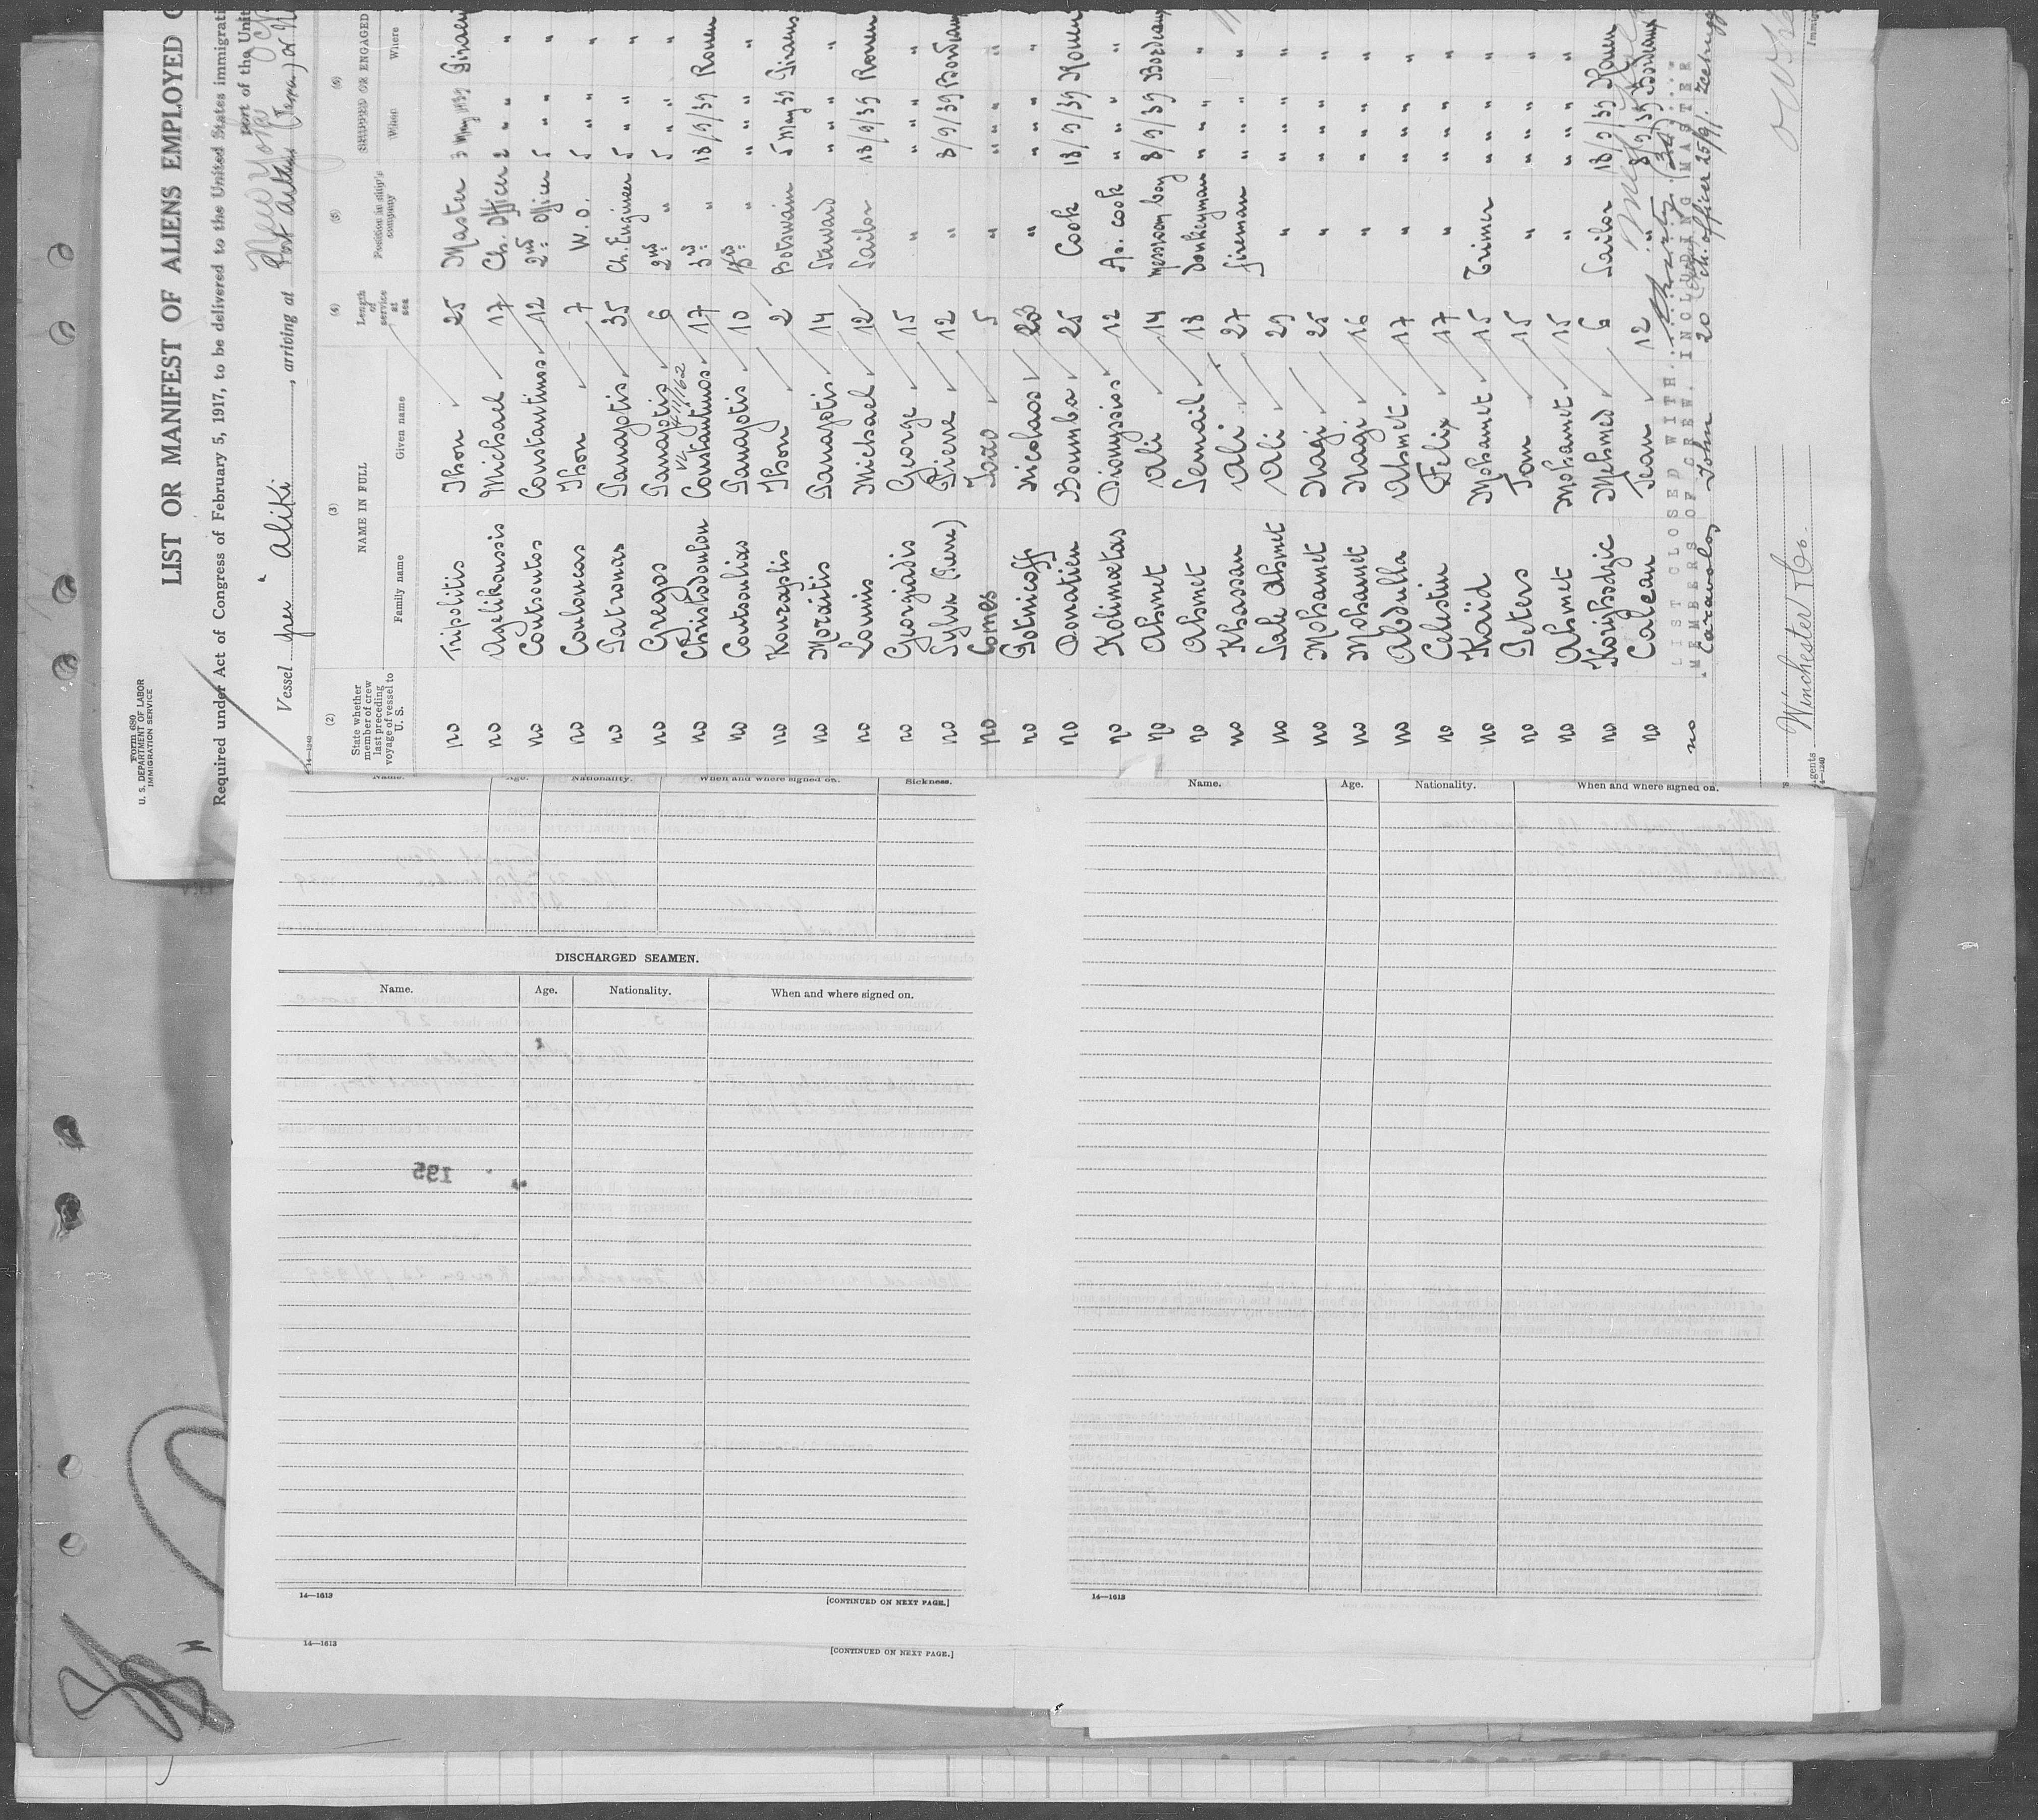 Form 680
U. S. DEPARTMENT OF LABOR
IMMIGRATION SERVICE
LIST OR MANIFEST OF ALIENS EMPLOYED
Required under Act of Congress of February 5, 1917, to be delivered to the United States immigrati
Port of the Unit
New York
Vessel Aliki, arriving at Port Arthur (Texas)
14—1240
(2) (3) (4) (5) (6)
State whether member of crew last preceding voyage of vessel to U. S. NAME IN FULL Length of service at sea Position in ship's company SHIPPED OR ENGAGED
Family name Given name When Where
no Tripolitis Jhon 25 Master 3 May 1939
no Agelikoussis Michael 17 Ch. Officer 2 " " "
no Coutsoutos Constantinos 12 2nd Officer 5 " " "
no Couloucas Jhon 7 W. O. 5 " " "
no Patronas Panajotis 35 Ch. Engineer 5 " " "
no Gregos Panajotis 6 2nd " 5 " " "
no Christodoulou Constantinos 17 3rd " 18/9/39 Rouen
no Coutsoulias Panajotis 10 " " " "
no Kouzaplis Jhon 2 Botswain 5 May 39
no Moraitis Panajotis 14 Steward " " " "
no Lomis Michael 12 Sailor 18/9/39 Rouen
no Georgiadis George 15 " " " " "
no Sylva (Pierre) Pierre 12 " 8/9/39 Bordeaux
no Gomes 5 " " " " "
no Nicolaos 23 " " " " "
no Donatien Boumba 25 Cook 18/9/39 Rouen
no Kolimatas Dionysios 12 As. cook " " " "
no Ahmet Ali 14 messroom boy 8/9/39 Bordeaux
no Ahmet Semail 18 Donkeyman " " " "
no Khassan Ali 27 Fireman " " " "
no Sale Ahmet Ali 29 " " " " "
no Mohamet Nagi 25 " " " " "
no Mohamet Nagi 16 " " " " "
no Abdulla Ahmet 17 " " " " "
no Celestin Felix 17 " " " " "
no Kaïd Mohamet 15 Trimer " " " "
no Peters Tom 15 " " " " "
no Ahmet Mohamet 15 " " " " "
no Mehmed 6 Sailor 18/9/39 Rouen
no Calean Jean 12 " 8/9/39 Bordeaux
LIST CLOSED WITH Thirty (30)
MEMBERS OF CREW, INCLUDING MASTER
no John 20 ch. officer 25/9/
Agents Winchester & Co.
14—1240
Name. Age. Nationality. When and where signed on. Sickness.
DISCHARGED SEAMEN.
Name. Age. Nationality. When and where signed on.
195
14—1613 [CONTINUED ON NEXT PAGE.]
14—1613 [CONTINUED ON NEXT PAGE.]
Name. Age. Nationality. When and where signed on.
14—1613